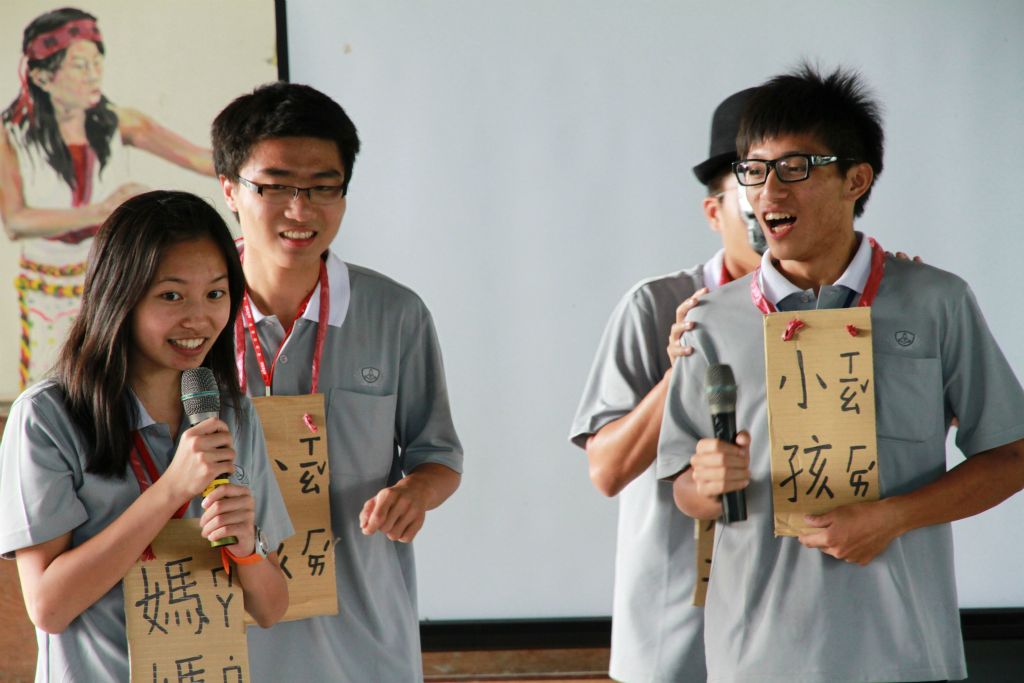 媽 ㄇㄚ
媽
ㄒㄧㄠˇ
ㄏㄞˊ
小 ㄒㄧㄠˇ
孩 ㄏㄞˊ